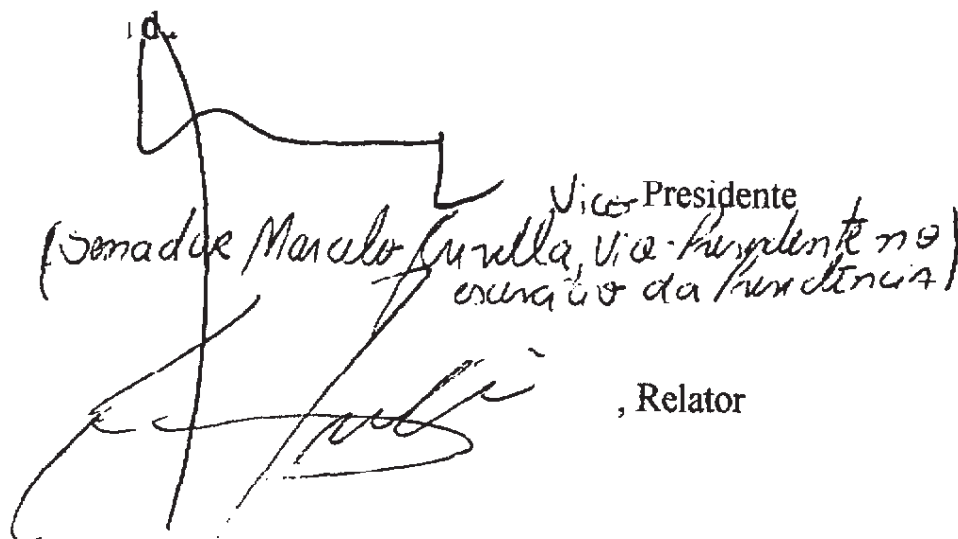 Vice-Presidente
(Senador Marcelo Crivella, Vice-Presidente no
exercício da Presidência)
, Relator